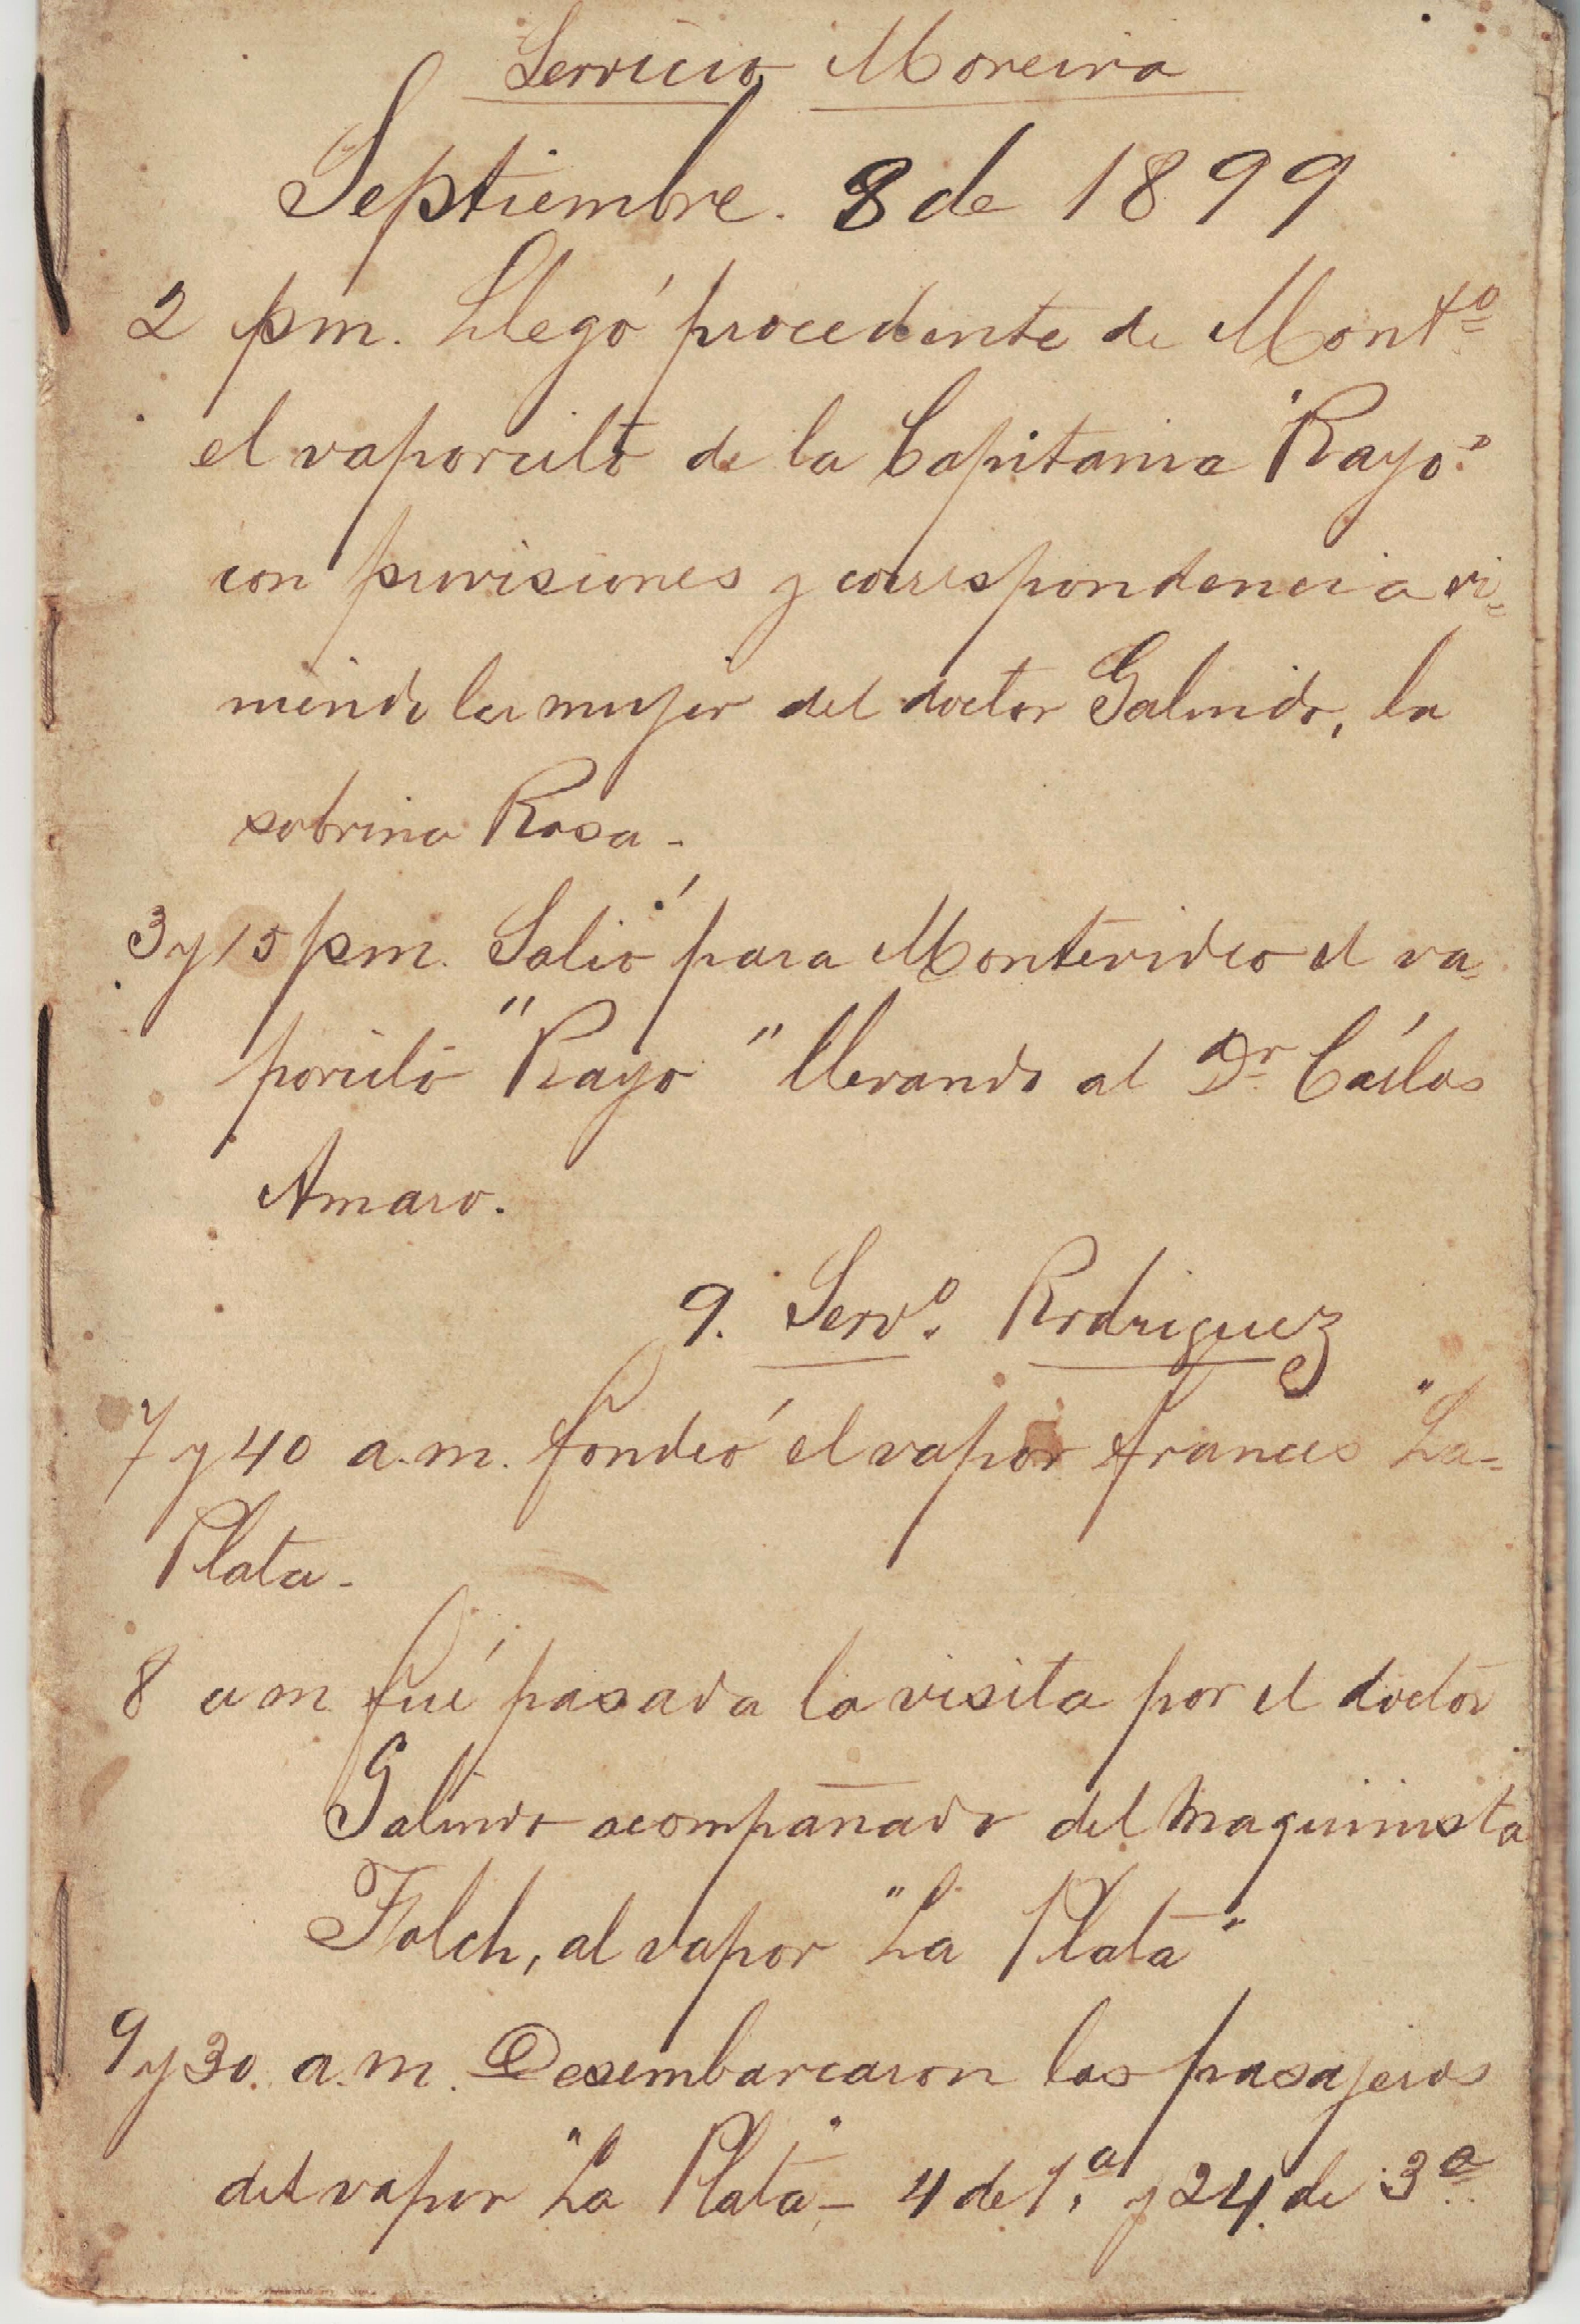 Servicio Moreira
Septiembre. 8 de 1899
2 pm. Llegó procedente de Montº
el vaporcito de la Capitania "Rayo"
con provisiones y correspondencia vi-
niendo la mujer del doctor Galindo, la
sobrina Rosa-
3 y 15 pm. Salió para Montevideo el va-
porcito "Rayo" llevando al Dr Cárlos
Amaro.
9. Servº. Rodriguez
7 y 40 a.m. fondeó el vapor frances "La-
Plata-
8 a m fué pasada la visita por el doctor
Galindo acompañado del maquinista
Folch, al vapor "La Plata"
9 y 30. a.m. Desembarcaron los pasajeros
del vapor "La Plata"- 4 de 1.ª y 24. de 3ª